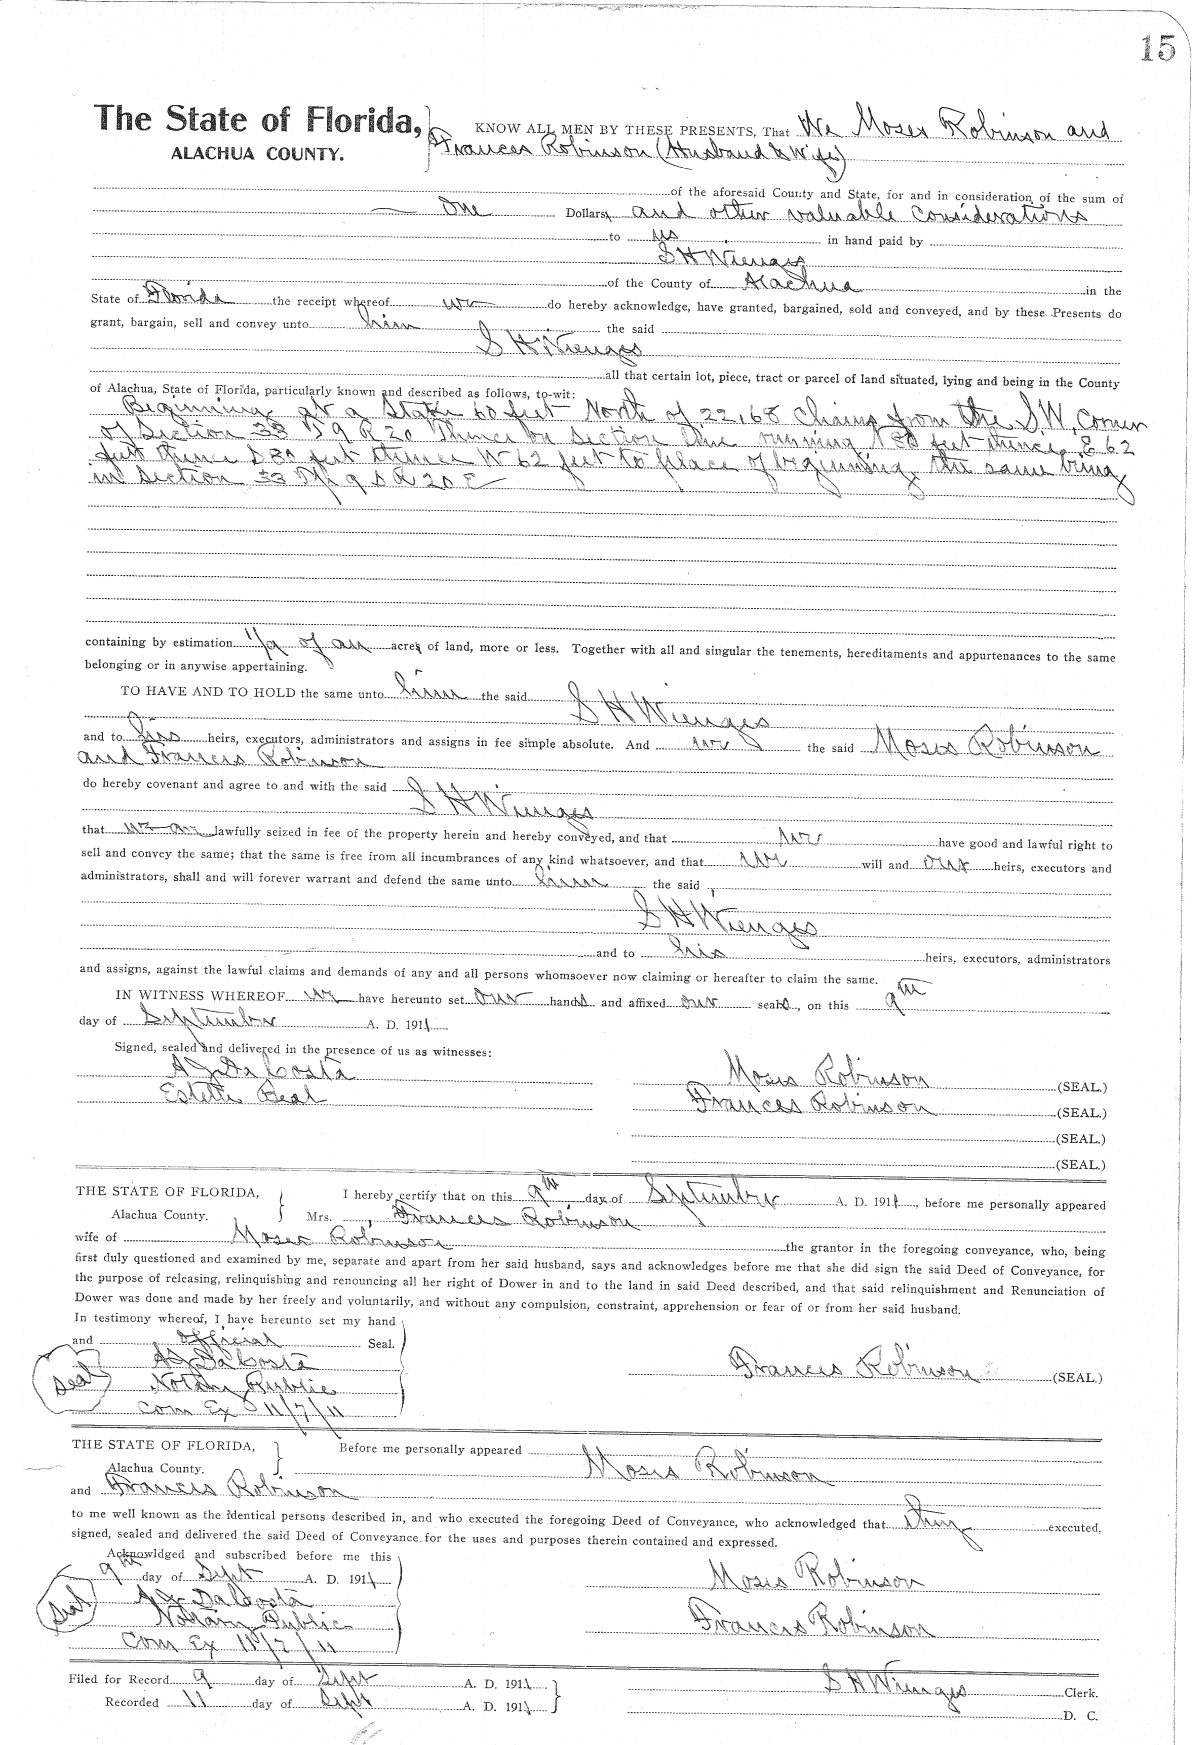 15
The State of Florida, KNOW ALL MEN BY THESE PRESENTS, That We Moses Robinson and
ALACHUA COUNTY. Frances Robinson (Husband & Wife)
of the aforesaid County and State, for and in consideration of the sum of
One Dollars, and other valuable considerations
to us in hand paid by
S H Wienges
of the County of Alachua in the
State of Florida the receipt whereof we do hereby acknowledge, have granted, bargained, sold and conveyed, and by these Presents do
grant, bargain, sell and convey unto him the said
S H Wienges
all that certain lot, piece, tract or parcel of land situated, lying and being in the County
of Alachua, State of Florida, particularly known and described as follows, to-wit:
Beginning at a Stake 60 feet North of 22,68 Chains from the S.W. Corner
of Section 33 T 9 R 20 Thence on Section line running N 80 feet thence E 62
feet thence S 80 feet thence W 62 feet to place of beginning, the same being
in Section 33 Tp 9 S R 20 E
containing by estimation of an acres of land, more or less. Together with all and singular the tenements, hereditaments and appurtenances to the same
belonging or in anywise appertaining.
TO HAVE AND TO HOLD the same unto him the said
S H Wienges
and to his heirs, executors, administrators and assigns in fee simple absolute. And we the said Moses Robinson
and Frances Robinson
do hereby covenant and agree to and with the said
S H Wienges
that we are lawfully seized in fee of the property herein and hereby conveyed, and that we have good and lawful right to
sell and convey the same; that the same is free from all incumbrances of any kind whatsoever, and that we will and our heirs, executors and
administrators, shall and will forever warrant and defend the same unto him the said
S H Wienges
and to his heirs, executors, administrators
and assigns, against the lawful claims and demands of any and all persons whomsoever now claiming or hereafter to claim the same.
IN WITNESS WHEREOF we have hereunto set our hands and affixed our seals, on this 9th
day of September A. D. 1911
Signed, sealed and delivered in the presence of us as witnesses:
A J DaCosta Moses Robinson (SEAL.)
Estelle Beal Frances Robinson (SEAL.)
(SEAL.)
(SEAL.)
THE STATE OF FLORIDA, I hereby certify that on this 9th day of September A. D. 1911, before me personally appeared
Alachua County. Mrs. Frances Robinson
wife of Moses Robinson the grantor in the foregoing conveyance, who, being
first duly questioned and examined by me, separate and apart from her said husband, says and acknowledges before me that she did sign the said Deed of Conveyance, for
the purpose of releasing, relinquishing and renouncing all her right of Dower in and to the land in said Deed described, and that said relinquishment and Renunciation of
Dower was done and made by her freely and voluntarily, and without any compulsion, constraint, apprehension or fear of or from her said husband.
In testimony whereof, I have hereunto set my hand
and official Seal.
A J DaCosta Frances Robinson (SEAL.)
Seal Notary Public
Com Ex 11/7/11
THE STATE OF FLORIDA, Before me personally appeared
Alachua County. Moses Robinson
and Frances Robinson
to me well known as the identical persons described in, and who executed the foregoing Deed of Conveyance, who acknowledged that they executed,
signed, sealed and delivered the said Deed of Conveyance for the uses and purposes therein contained and expressed.
Acknowldged and subscribed before me this
9th day of Sept A. D. 1911 Moses Robinson
Seal A J DaCosta
Notary Public Frances Robinson
Com Ex 11/7/11
Filed for Record 9 day of Sept A. D. 1911 S H Wienges Clerk.
Recorded 11 day of Sept A. D. 1911 D. C.